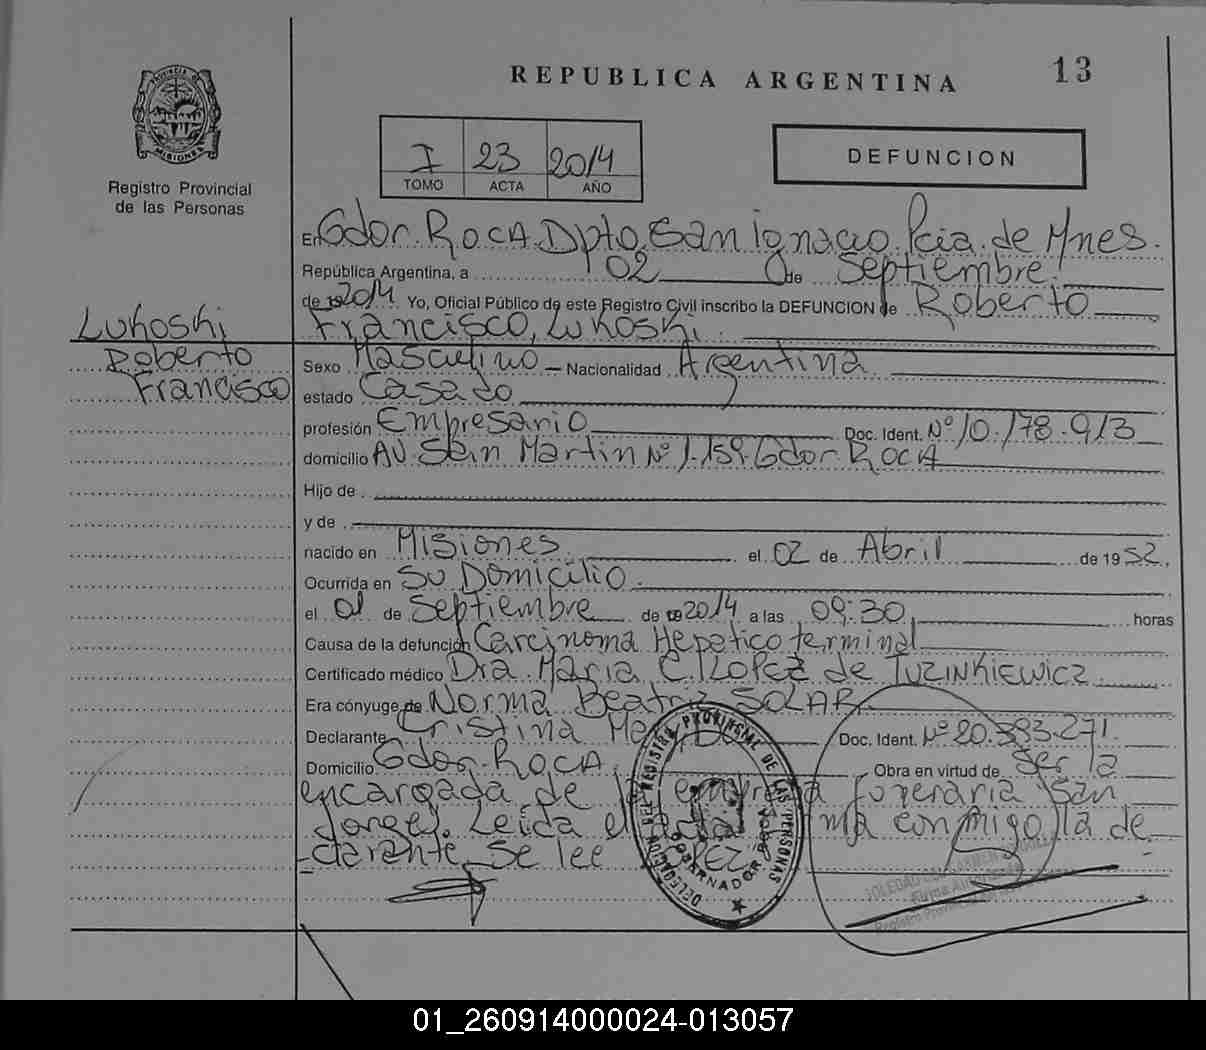 REPUBLICA ARGENTINA
13
PROVINCIA DE MISIONES
Registro Provincial
de las Personas
I 23 2014
TOMO ACTA AÑO
DEFUNCION
En Gdor. Roca Dpto. San Ignacio Pcia. de Mnes.
República Argentina, a 02 de Septiembre
de 2014 Yo, Oficial Público de este Registro Civil inscribo la DEFUNCION de Roberto
Francisco, Lukoski.
Lukoski
Roberto
Francisco
Sexo Masculino – Nacionalidad Argentina
estado Casado
profesión Empresario Doc. Ident. Nº 10.178.913
domicilio AV San Martin Nº 1.159. Gdor Roca
Hijo de
y de
nacido en Misiones el 02 de Abril de 1952.
Ocurrida en Su Domicilio
el 01 de Septiembre de 2014 a las 09:30 horas
Causa de la defunción Carcinoma Hepatico terminal
Certificado médico Dra. Maria C. Lopez de Tuzinkiewicz
Era cónyuge de Norma Beatriz SOLAR
Declarante Cristina Doc. Ident. Nº 20.383.271.
Domicilio Gdor. Roca Obra en virtud de Ser la
encargada de la empresa funeraria San
Jorge. Leida el acta firma conmigo la de-
clarante. Se lee
DELEGACION DEL REGISTRO PROVINCIAL DE LAS PERSONAS
GOBERNADOR ROCA
SOLEDAD
Firma Autorizada
Registro Provincial
01_260914000024-013057